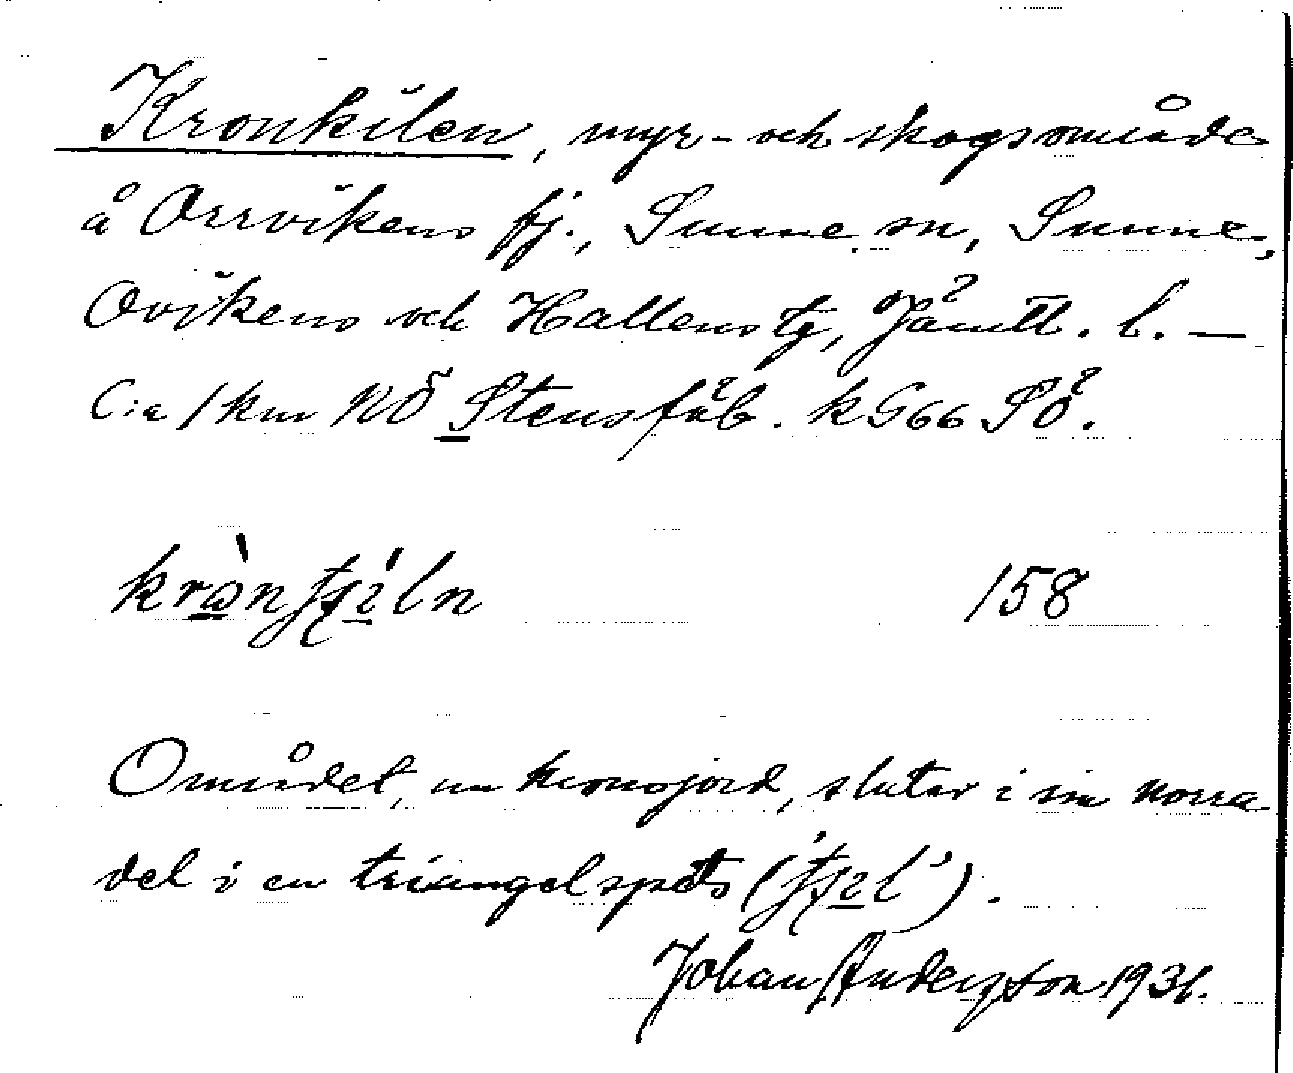 Kronkilen, myr- och skogsområde
å Orrvikens fj., Sunne sn, Sunne,
Ovikens och Hallens tg, Jämtl. l. —
C:a 1 km NÖ Stensfäb. k G66 SÖ.
158
Området, nu kronojord, slutar i sin norra
del i en triangelspets
Johan Andersson 1931.